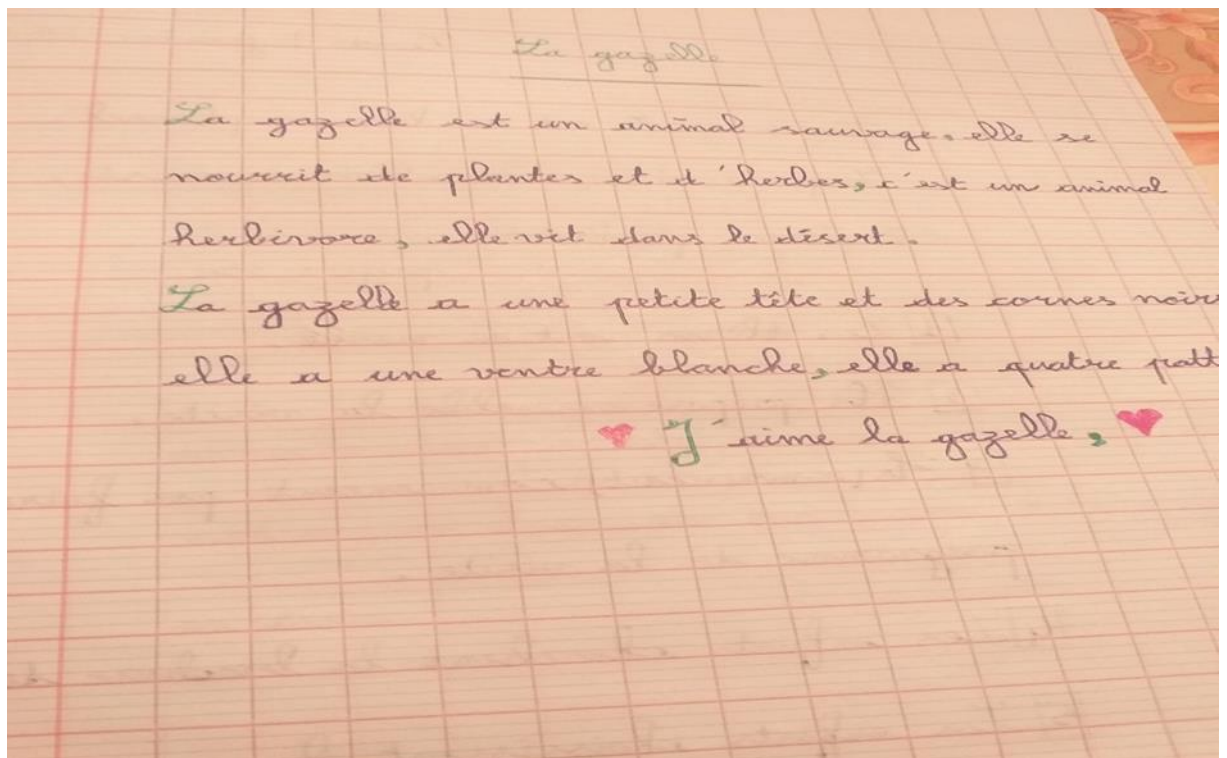 La gazelle
La gazelle est un animal sauvage. elle se
nourrit de plantes et d'herbes, c'est un animal
herbivore, elle vit dans le désert.
La gazelle a une petite tête et des cornes noir
elle a une ventre blanche, elle a quatre patt
J'aime la gazelle,